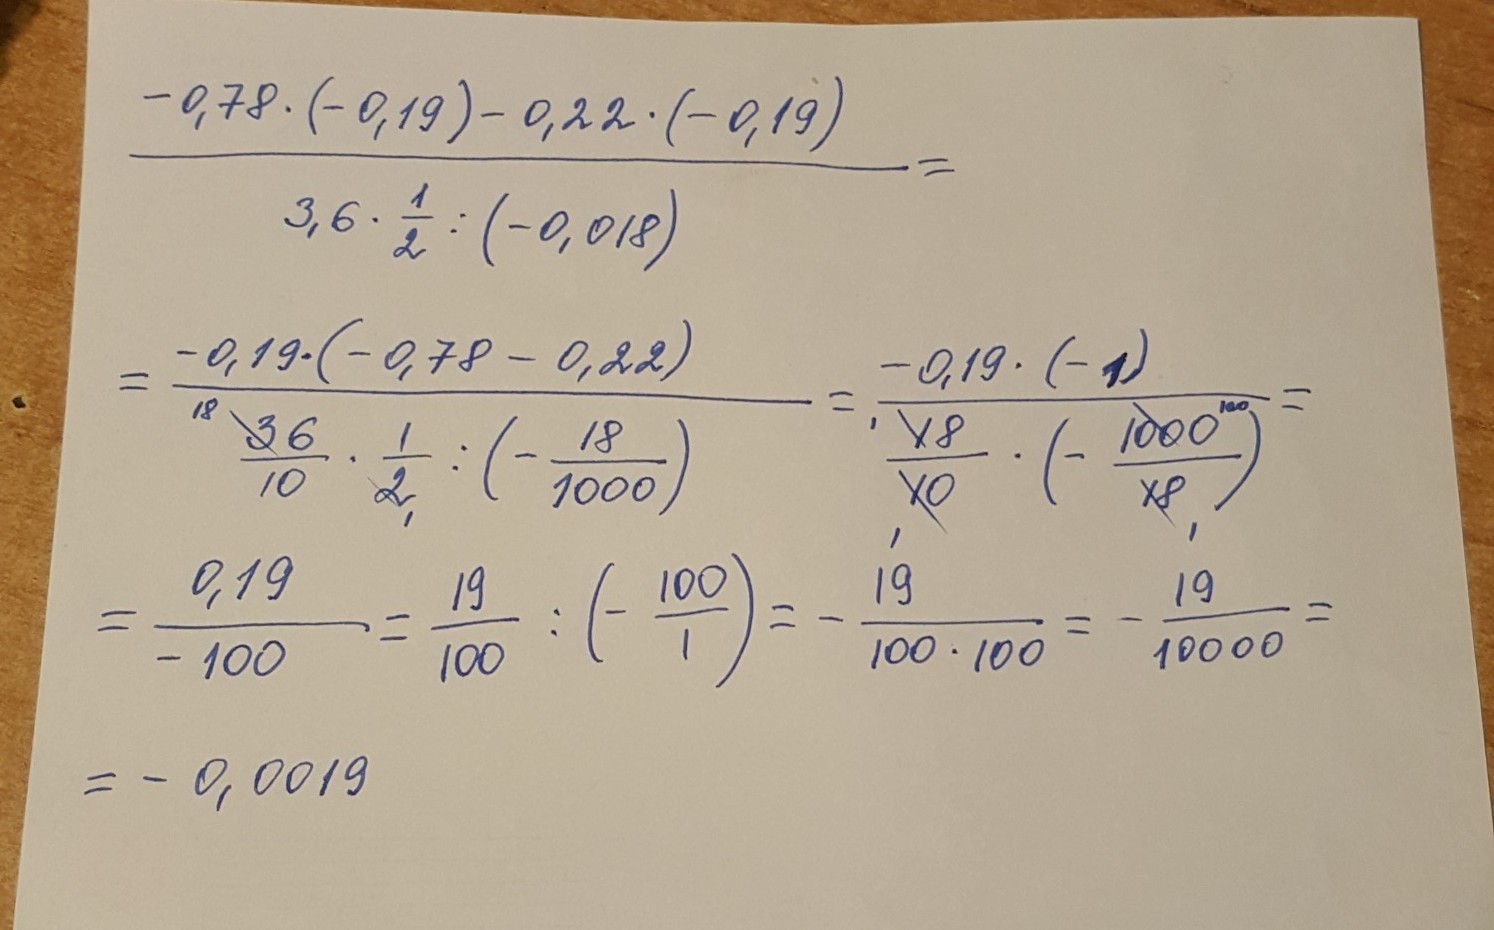 -0,78·(-0,19)-0,22·(-0,19)
=
3,6·1/2:(-0,018)
= -0,19·(-0,78-0,22) = -0,19·(-1) =
18 36/10 · 1/2 1 : (-18/1000) 1 18/10 1 · (-1000 100/18 1)
= 0,19/-100 = 19/100 : (-100/1) = - 19/100·100 = - 19/10000 =
= -0,0019